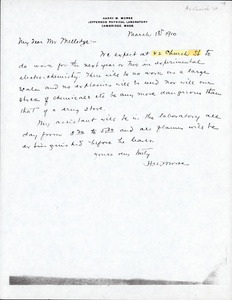 HARRY W. MORSE
JEFFERSON PHYSICAL LABORATORY
CAMBRIDGE, MASS.
March 18th 1910
My Dear Mr
We expect at 42 Church St to
do work for the next year or two in experimental
electro-chemistry. There will be no work on a large
scale and no explosives will be used nor will our
store of chemicals etc be any more dangerous than
that of a drug store.
My assistant will be in the laboratory all
day from and all flames will be
extinguished before he leaves.
Yours very truly
H W Morse